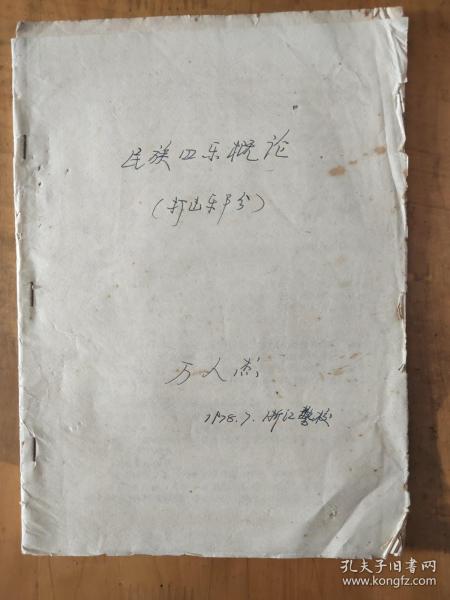 民族四乐概论
(打击乐部分)
万人杰
1978.7.浙江艺校
孔夫子旧书网
www.kongfz.com